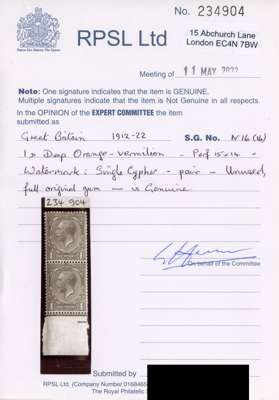 No. 234904
RPSL Ltd
15 Abchurch Lane
London EC4N 7BW
Meeting of 11 MAY 2022
Note: One signature indicates that the item is GENUINE.
Multiple signatures indicate that the item is Not Genuine in all respects.
In the OPINION of the EXPERT COMMITTEE the item
submitted as
Great Britain 1912-22 S.G. No. N16(16)
1d Deep Orange-vermilion - Perf 15x14 -
Watermark: Single Cypher - pair - Unused,
full original gum — is Genuine
234 904
On behalf of the Committee
Submitted by
RPSL Ltd. (Company Number
The Royal Philatelic